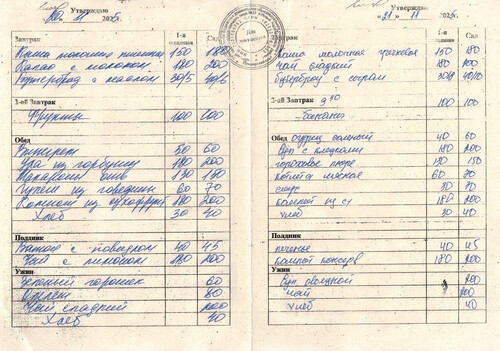 Утверждаю
11 2025
Завтрак
1-я
Сад
Каша молочная пшенная 150 180
Какао с молоком 180 200
Бутерброд с маслом 30/5 40/6
2-ой Завтрак
Фрукты 100 100
Обед
Винегрет 50 60
Уха из горбуши 180 200
Макароны отв 130 150
Гуляш из говядины 60 70
Компот из сухофрук 180 200
Хлеб 30 40
Полдник
Батон с повидлом 40 45
Чай с лимоном 180 200
Ужин
Зеленый горошек 60
Омлет 80
Чай сладкий 200
Хлеб 40
Утверждаю
«21» 11 2025
Завтрак
1-я
Сад
Каша молочная гречневая 150 180
Чай сладкий 180 200
Бутерброд с сыром
2-ой Завтрак 9 30 100 100
Бананы
Обед Огурец соленый 40 60
Суп с клецками 180 200
гороховое пюре 130 150
котлета мясная 60 70
соус 30 30
компот из с/ 180 200
хлеб 30 40
Полдник
печенье 40 45
Компот консерв 180 200
Ужин
Суп овощной 200
чай 200
хлеб 40